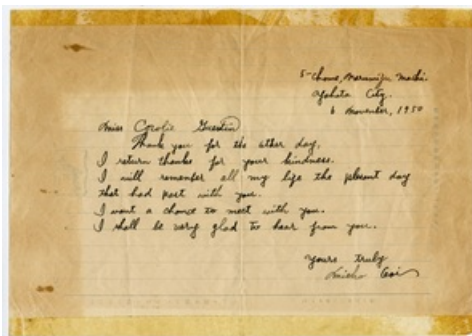 5-Chome, Maruniju Machi.
Yahata City.
6 November, 1950
Miss Coralie Guertin
Thank you for the other day.
I return thanks for your kindness.
I will remember all my life the plesent day
that had part with you.
I want a chance to meet with you.
I shall be very glad to hear from you.
Yours truly